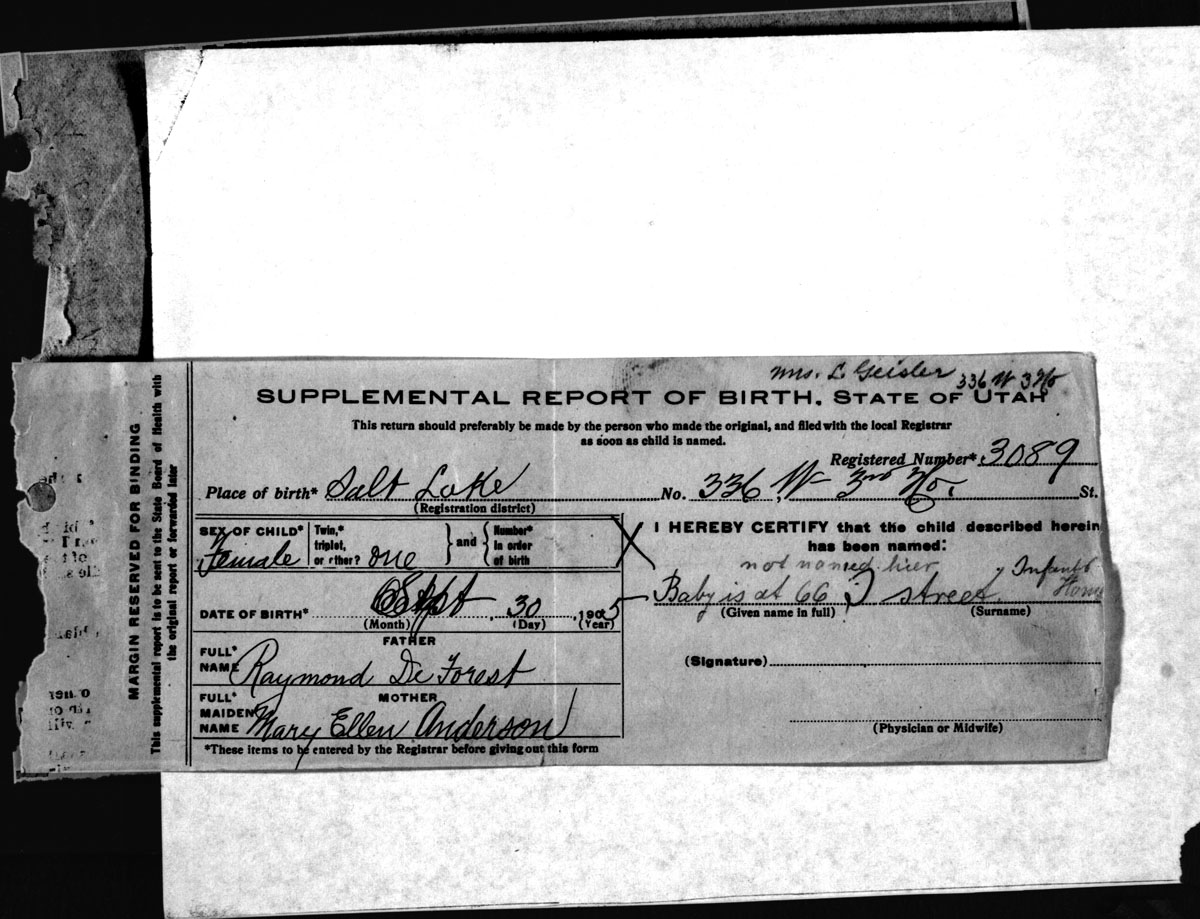 Mrs. L. Geisler 336 W 3 No
SUPPLEMENTAL REPORT OF BIRTH, STATE OF UTAH
This return should preferably be made by the person who made the original, and filed with the local Registrar
as soon as child is named.
Registered Number* 3089
Place of birth* Salt Lake No. 336, W 3rd No. St.
(Registration district)
SEX OF CHILD* Female Twin,* triplet, or other? one and Number* in order of birth
DATE OF BIRTH* Sept 30, 1905
(Month) (Day) (Year)
FATHER
FULL* NAME Raymond De Forest
MOTHER
FULL* MAIDEN NAME Mary Ellen Anderson
*These items to be entered by the Registrar before giving out this form
I HEREBY CERTIFY that the child described herein
has been named:
not named hier Infants
Baby is at 66 street Home
(Given name in full) (Surname)
(Signature)
(Physician or Midwife)
MARGIN RESERVED FOR BINDING
This supplemental report is to be sent to the State Board of Health with
the original report or forwarded later